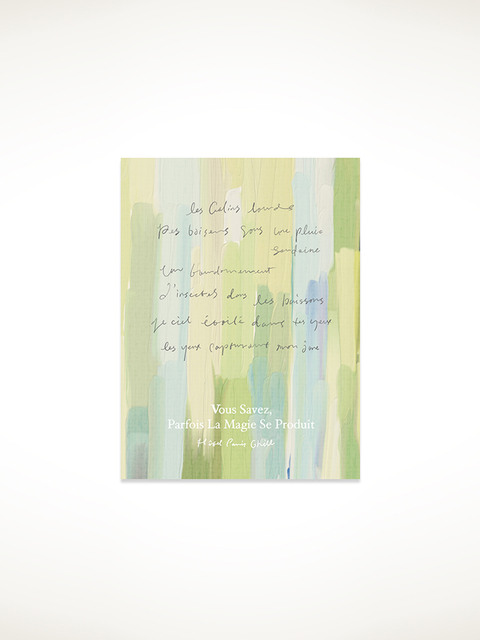 les Calins
Des baisers sous une pluie
soudaine
Un bourdonnement
d'insectes dans les buissons
le ciel étoilé dans tes yeux
les yeux capturant mon
Vous Savez,
Parfois La Magie Se Produit
Paris